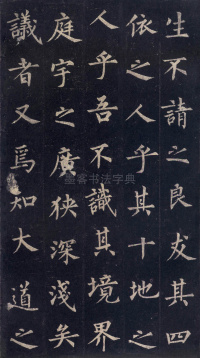 生不請之良友其四
依之人乎其十地之
人乎吾不識其境界
庭宇之廣狹深淺矣
議者又焉知大道之
墨客书法字典